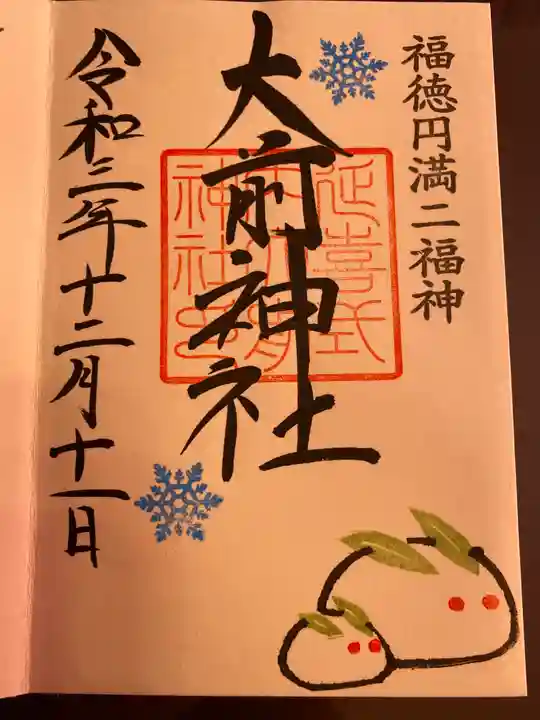 福徳円満二福神
大前神社
延喜式
神社
令和三年十二月十一日